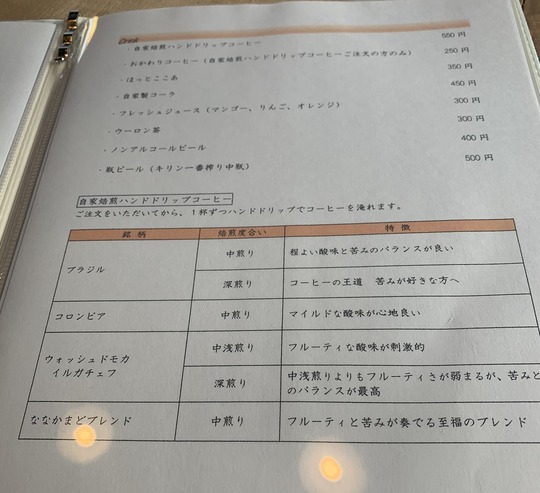 Drink
・自家焙煎ハンドドリップコーヒー 550 円
・おかわりコーヒー（自家焙煎ハンドドリップコーヒーご注文の方のみ） 250 円
・ほっとここあ 350 円
・自家製コーラ 450 円
・フレッシュジュース（マンゴー、りんご、オレンジ） 300 円
・ウーロン茶 300 円
・ノンアルコールビール 400 円
・瓶ビール（キリン一番搾り中瓶） 500 円
自家焙煎ハンドドリップコーヒー
ご注文をいただいてから、１杯ずつハンドドリップでコーヒーを淹れます。
銘柄 焙煎度合い 特徴
ブラジル 中煎り 程よい酸味と苦みのバランスが良い
深煎り コーヒーの王道 苦みが好きな方へ
コロンビア 中煎り マイルドな酸味が心地良い
ウォッシュドモカ
イルガチェフ
中浅煎り フルーティな酸味が刺激的
深煎り 中浅煎りよりもフルーティさが弱まるが、苦みと
のバランスが最高
ななかまどブレンド 中煎り フルーティと苦みが奏でる至福のブレンド